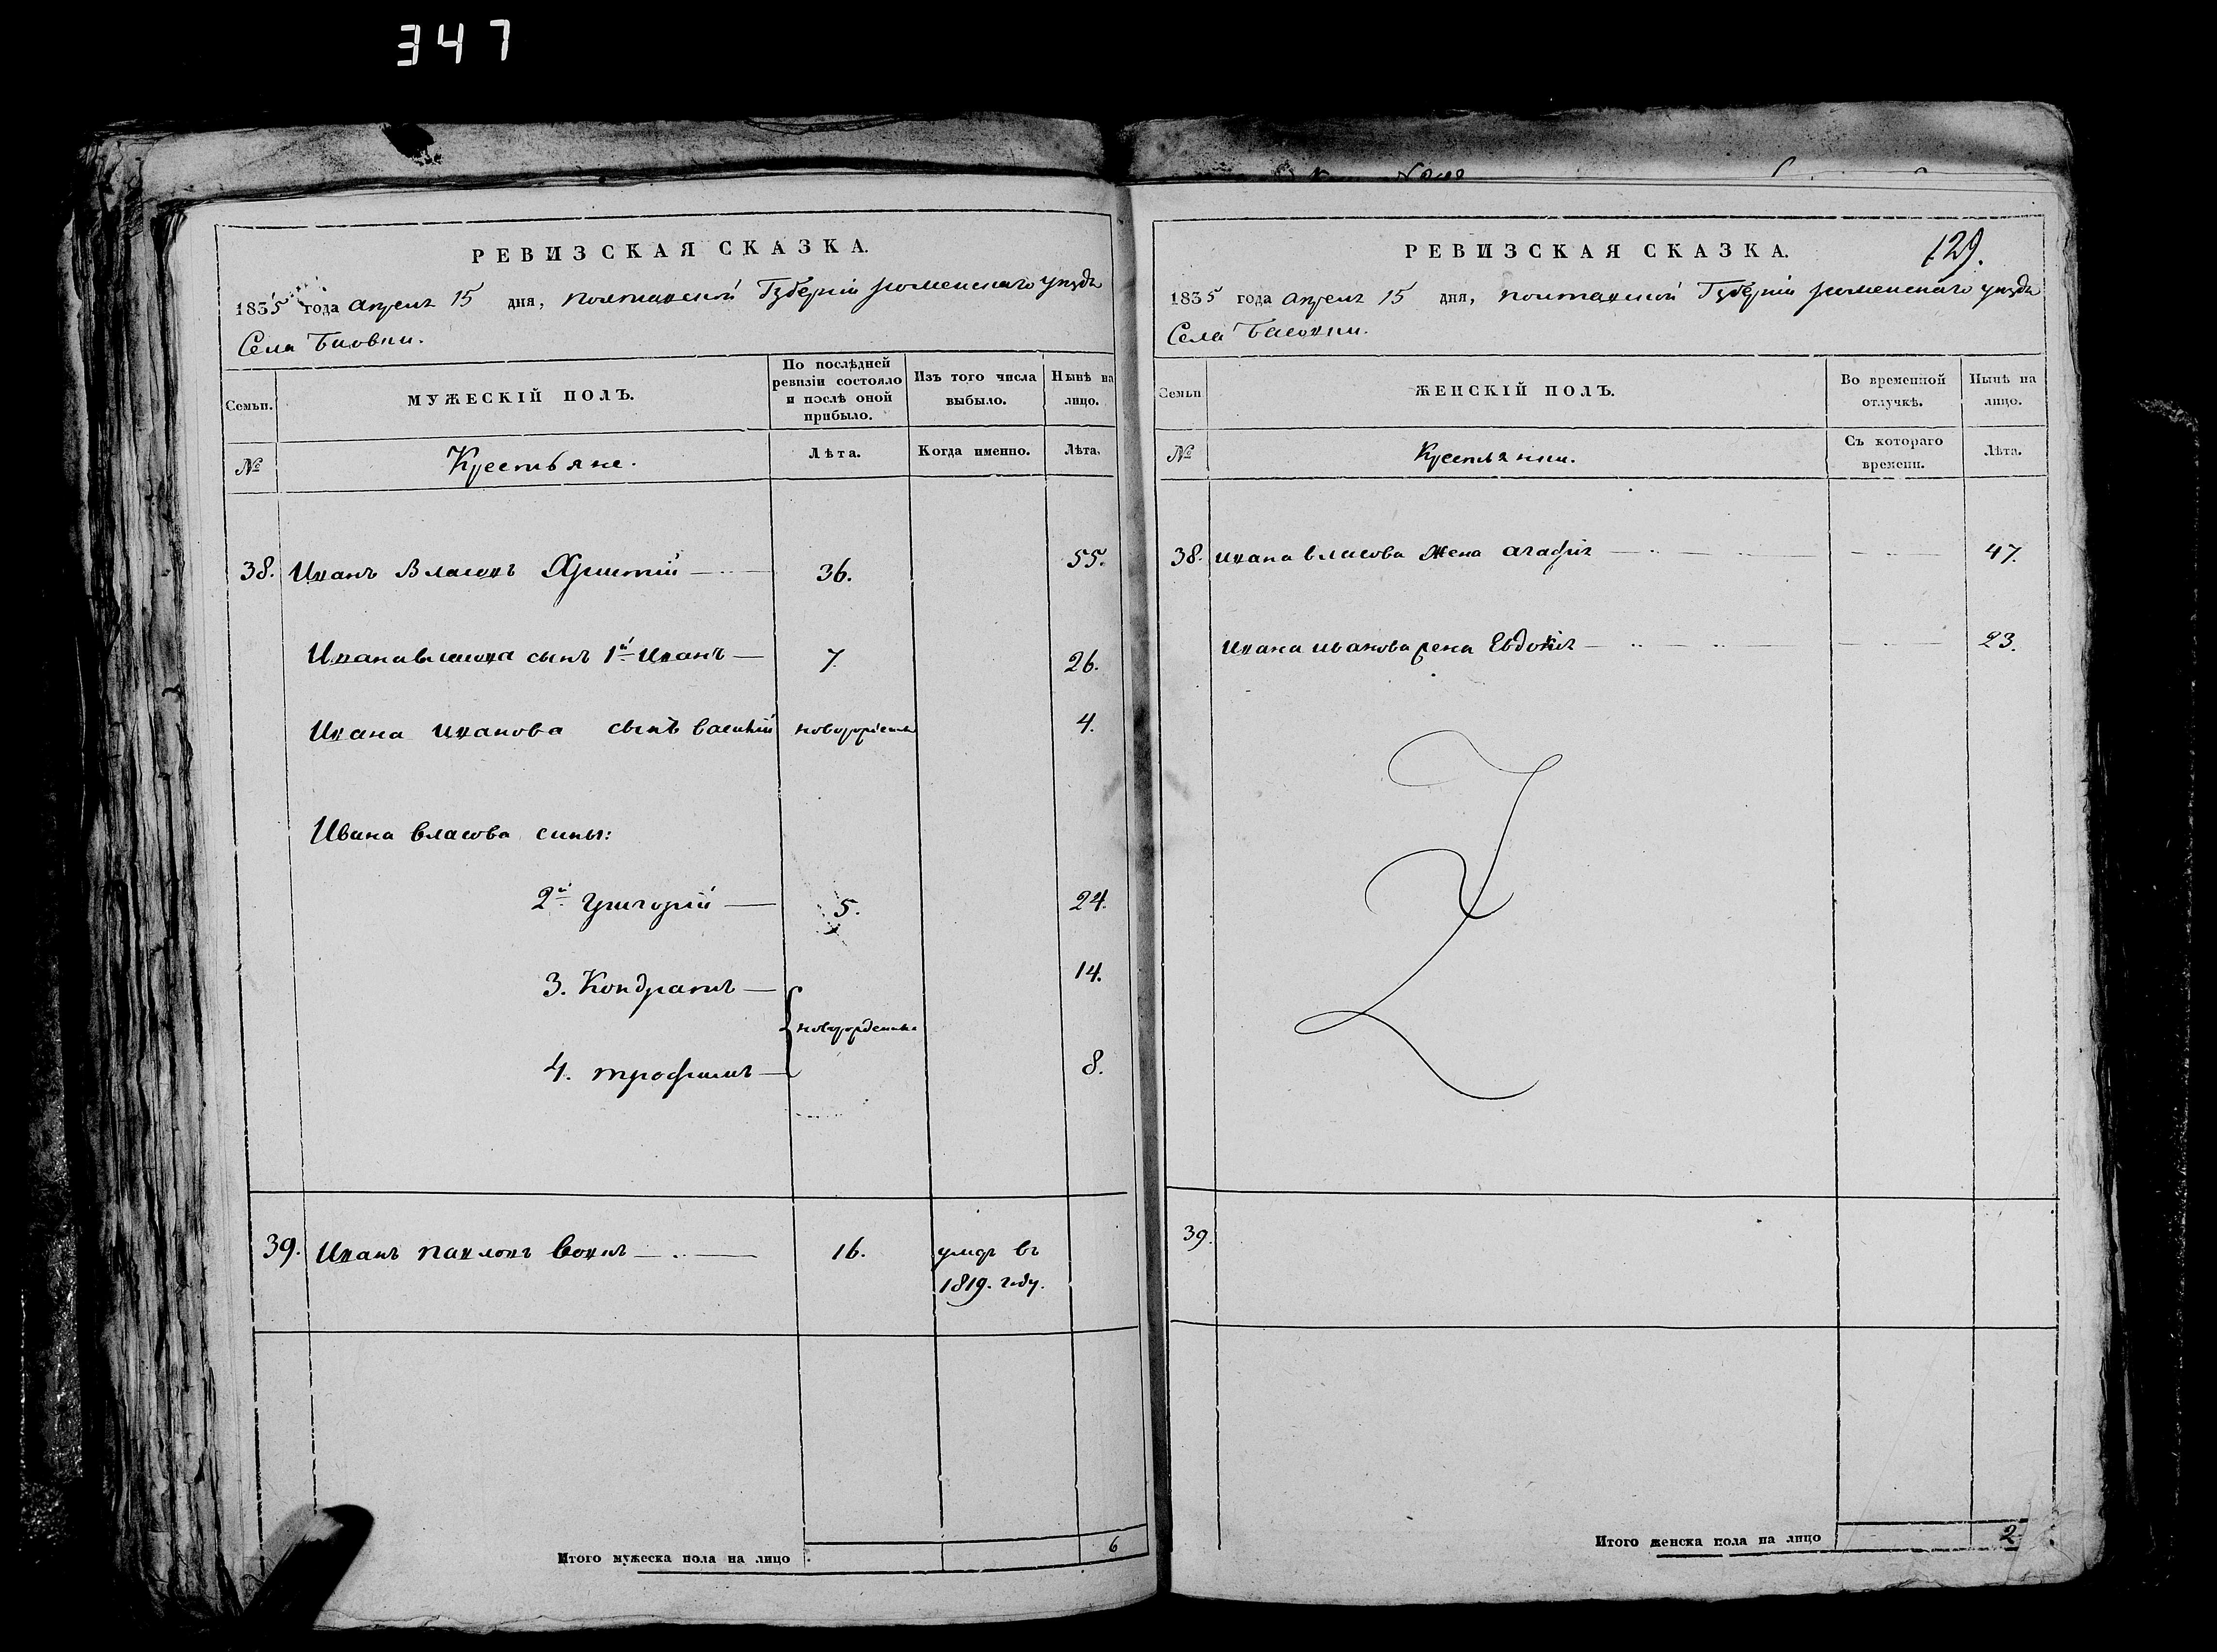 347
РЕВИЗСКАЯ СКАЗКА.
1835 года апреля 15 дня, полтавской Губерніи роменскаго уезда
Села Басовки.
Семьи.
МУЖЕСКІЙ ПОЛЪ.
По послѣдней ревизіи состояло и послѣ оной прибыло.
Изъ того числа выбыло.
Нынѣ на лицо.
№
Крестьяне.
Лѣта.
Когда именно.
Лѣта.
38. Иванъ Власовъ 36. 55.
Ивана власова сынъ 1й Иванъ 7. 26.
Ивана иванова сынъ василій новорожденъ 4.
Ивана власова сины:
2й григорій 5. 24.
3. Кондратъ 14.
новорожденны
4. трофимъ 8.
39. Иванъ павловъ Вовкъ 16. умре въ
1819. году.
Итого мужеска пола на лицо 6
РЕВИЗСКАЯ СКАЗКА.
129.
1835 года апреля 15 дня, полтавской Губерніи роменскаго уезда
Села Басовки.
Семьи
ЖЕНСКІЙ ПОЛЪ.
Во временной отлучкѣ.
Нынѣ на лицо.
№
Крестьянки.
Съ котораго времени.
Лѣта.
38. ивана власова жена агафія 47.
ивана иванова жена Евдокія 23.
39.
Итого женска пола на лицо 2